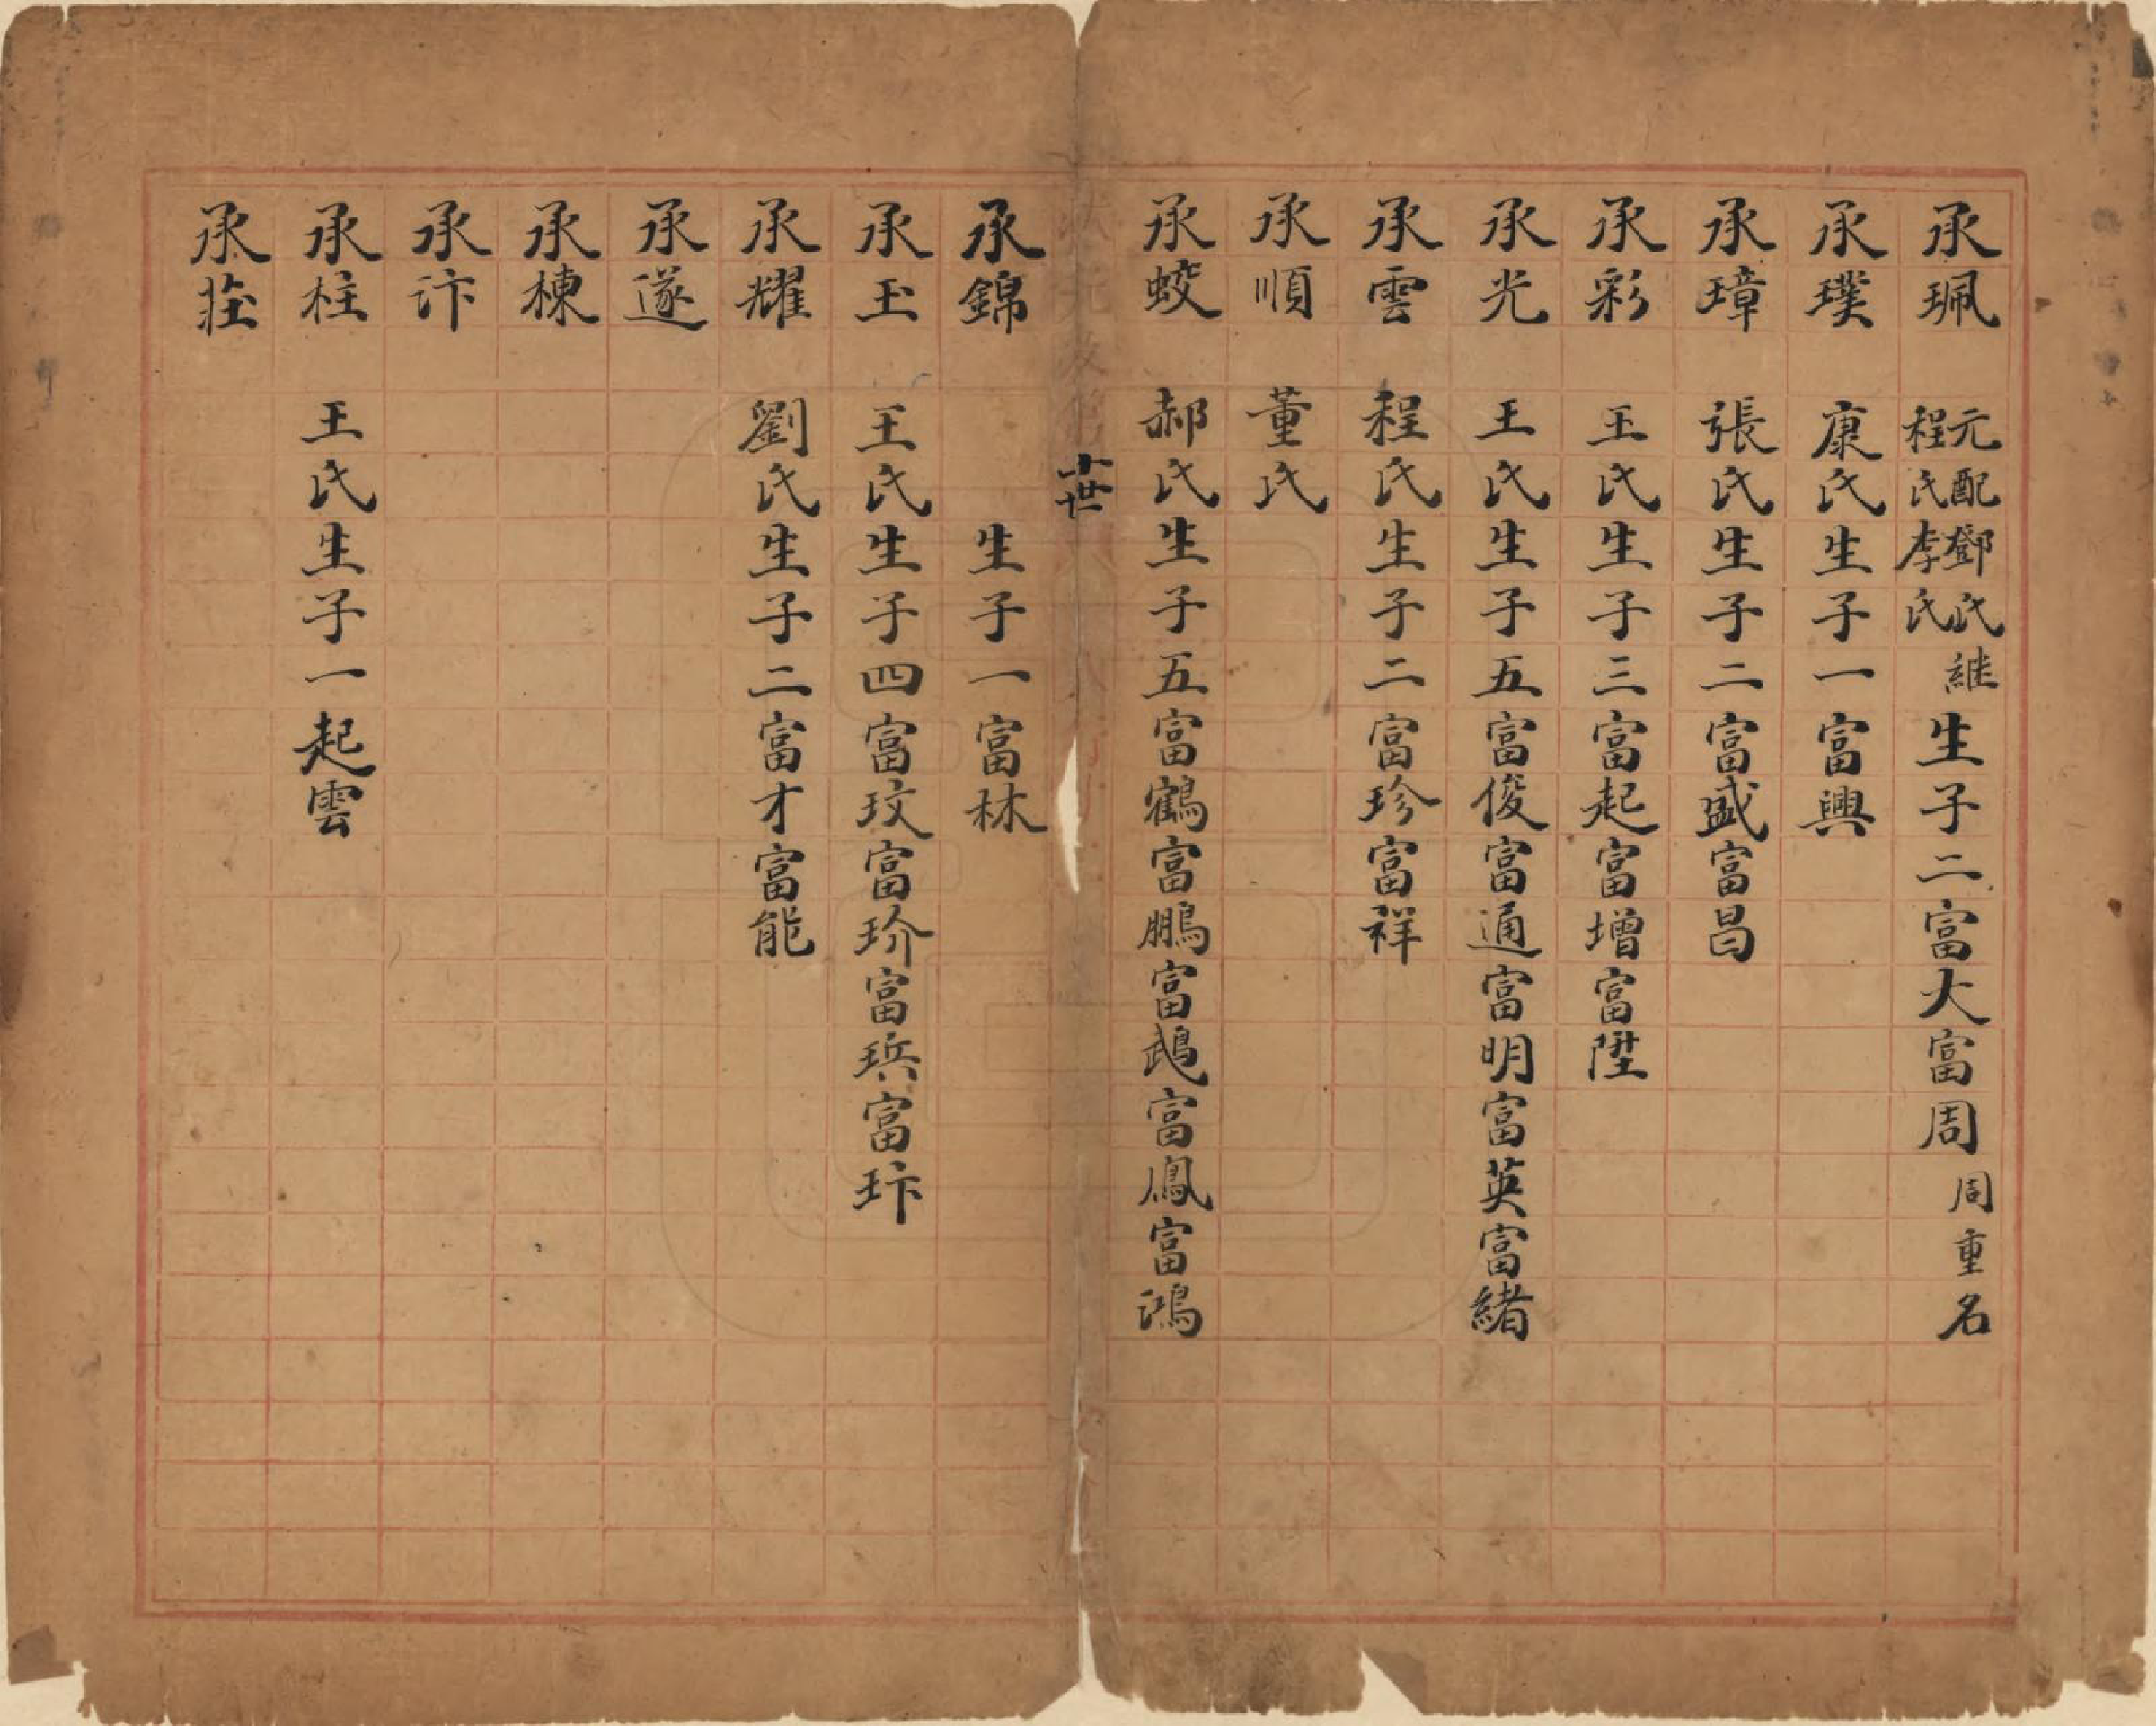 承珮 元配鄧氏継程氏李氏 生子二富大富周 周重名
承璞 康氏生子一富興
承璋 張氏生子二富盛富昌
承彩 王氏生子三富起富增富陞
承光 王氏生子五富俊富通富明富英富緒
承雲 程氏生子二富珍富祥
承順 董氏
承蛟 郝氏生子五富鶴富鵬富鵡富鳳富鴻
十世
承錦 生子一富林
承玉 王氏生子四富玟富玠富玭富玣
承耀 劉氏生子二富才富能
承遂
承棟
承汴
承柱 王氏生子一起雲
承莊